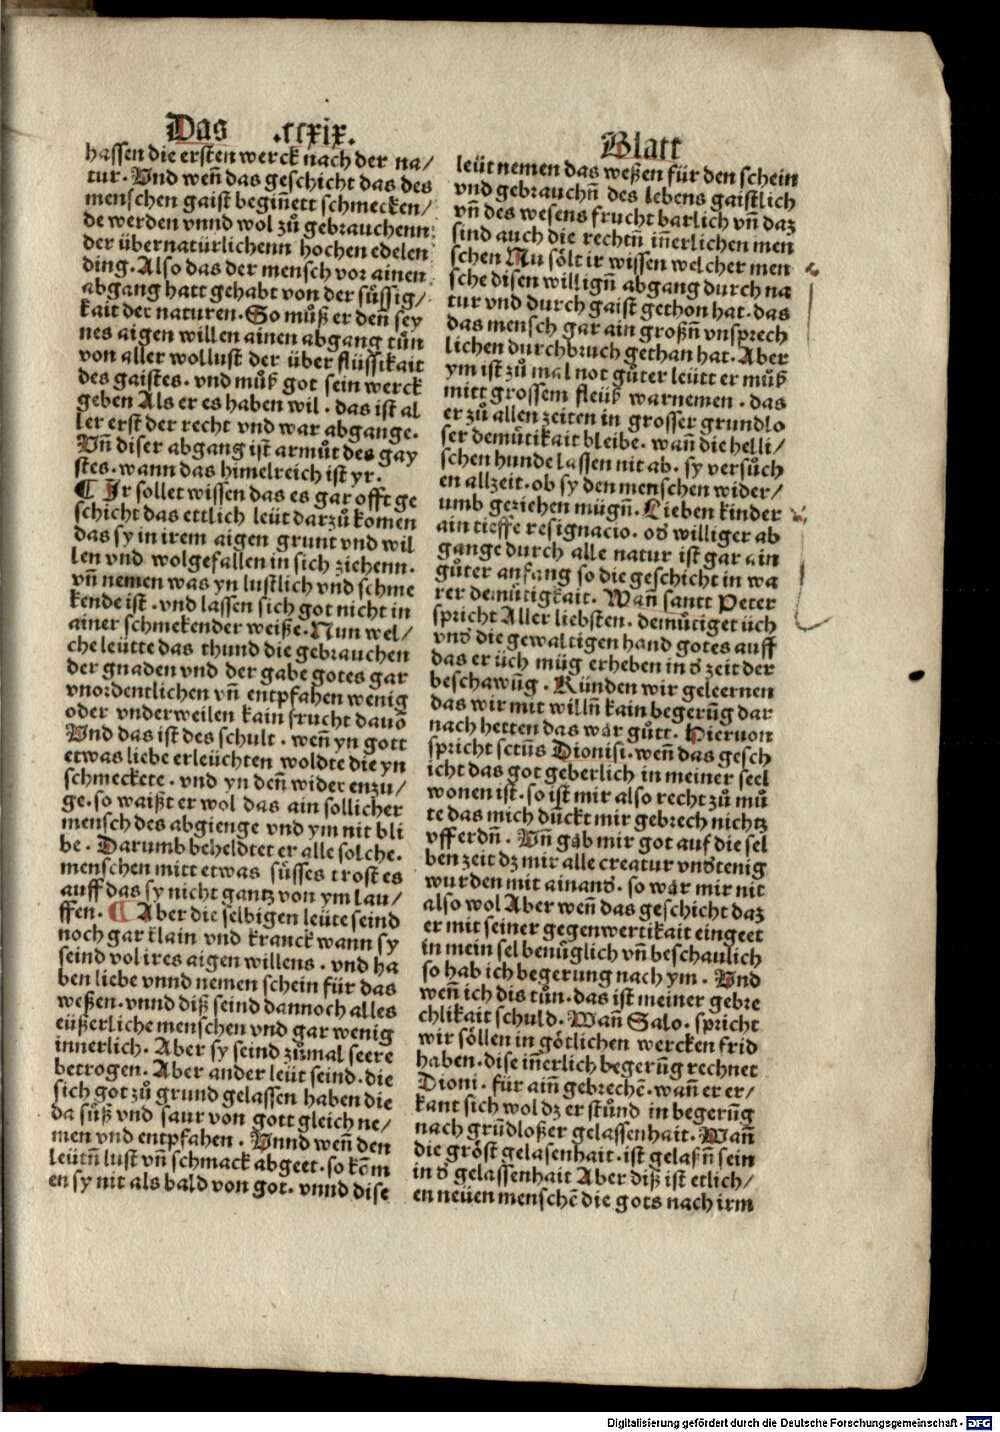 Das .ccxix. Blatt
hassen die ersten werck nach der na/
tur. Vnd weñ das geschicht das des
menschen gaist beginnett schmecken/
de werden vnnd wol zů gebrauchenn
der übernatürlichenn hochen edelen
ding. Also das der mensch vor ainen
abgang hatt gehabt von der sůssig/
kait der naturen. So můß er deñ sey
nes aigen willen ainen abgang tůn
von aller wollust der über flüssikait
des gaistes. vnd můß got sein werck
geben Als er es haben wil. das ist al
ler erst der recht vnd war abgange.
Vñ diser abgang ist armůt des gay
stes. wann das himelreich ist yr.
¶ Ir sollet wissen das es gar offt ge
schicht das ettlich leüt darzů komen
das sy in irem aigen grunt vnd wil
len vnd wolgefallen in sich ziehenn.
vñ nemen was yn lustlich vnd schme
kende ist. vnd lassen sich got nicht in
ainer schmekender weiße. Nun wel/
che leütte das thund die gebrauchen
der gnaden vnd der gabe gotes gar
vnordentlichen vñ entpfahen wenig
oder vnderweilen kain frucht dauō
Vnd das ist des schult. weñ yn gott
etwas liebe erleüchten woldte die yn
schmeckete. vnd yn deñ wider enzu/
ge. so waißt er wol das ain sollicher
mensch des abgienge vnd ym nit bli
be. Darumb beheldtet er alle solche.
menschen mitt etwas sůsses trost es
auff das sy nicht gantz von ym lau/
ffen. ¶ Aber die selbigen leüte seind
noch gar klain vnd kranck wann sy
seind vol ires aigen willens. vnd ha
ben liebe vnnd nemen schein für das
weßen. vnnd diß seind dannoch alles
eüßerliche menschen vnd gar wenig
innerlich. Aber sy seind zůmal seere
betrogen. Aber ander leüt seind. die
sich got zů grund gelassen haben die
da sůß vnd saur von gott gleich ne/
men vnd entpfahen. Vnnd weñ den
leütñ lust vñ schmack abgeet. so kōm
en sy nit als bald von got. vnnd dise
leüt nemen das weßen für den schein
vnd gebrauchñ des lebens gaistlich
vñ des wesens frucht barlich vñ daz
sind auch die rechtñ iñerlichen men
schen Nu sölt ir wissen welcher men
sche disen willigñ abgang durch na
tur vnd durch gaist gethon hat. das
das mensch gar ain großñ vnsprech
lichen durchbruch gethan hat. Aber
ym ist zů mal not gůter leütt er můß
mitt grossem fleüß warnemen. das
er zů allen zeiten in grosser grundlo
ser demůtikait bleibe. wañ die helli/
schen hunde lassen nit ab. sy versůch
en allzeit. ob sy den menschen wider/
umb geziehen mügñ. Lieben kinder
ain tieffe resignacio. od williger ab
gange durch alle natur ist gar ain
gůter anfang so die geschicht in wa
rer demůtigkait. Wañ santt Peter
spricht Aller liebsten. demůtiget üch
vnd die gewaltigen hand gotes auff
das er üch müg erheben in d zeit der
beschawūg. Künden wir geleernen
das wir mit willñ kain begerūg dar
nach hetten das wär gůtt. Hieruon
spricht sctūs Dionisi. weñ das gesch
icht das got geberlich in meiner seel
wonen ist. so ist mir also recht zů mů
te das mich dūckt mir gebrech nichtz
vff erdñ. Vñ gäb mir got auf die sel
ben zeit dz mir alle creatur vndtenig
wurden mit ainand. so wär mir nit
also wol Aber weñ das geschicht daz
er mit seiner gegenwertikait eingeet
in mein sel benůglich vñ beschaulich
so hab ich begerung nach ym. Vnd
weñ ich dis tůn. das ist meiner gebre
chlikait schuld. Wañ Salo. spricht
wir söllen in götlichen wercken frid
haben. dise iñerlich begerūg rechnet
Dioni. für aiñ gebrechē. wañ er er/
kant sich wol dz er stůnd in begerūg
nach grūdloßer gelassenhait. Wañ
die gröst gelasenhait. ist gelaßñ sein
in d gelassenhait Aber diß ist etlich/
en neüen menschē die gots nach irm